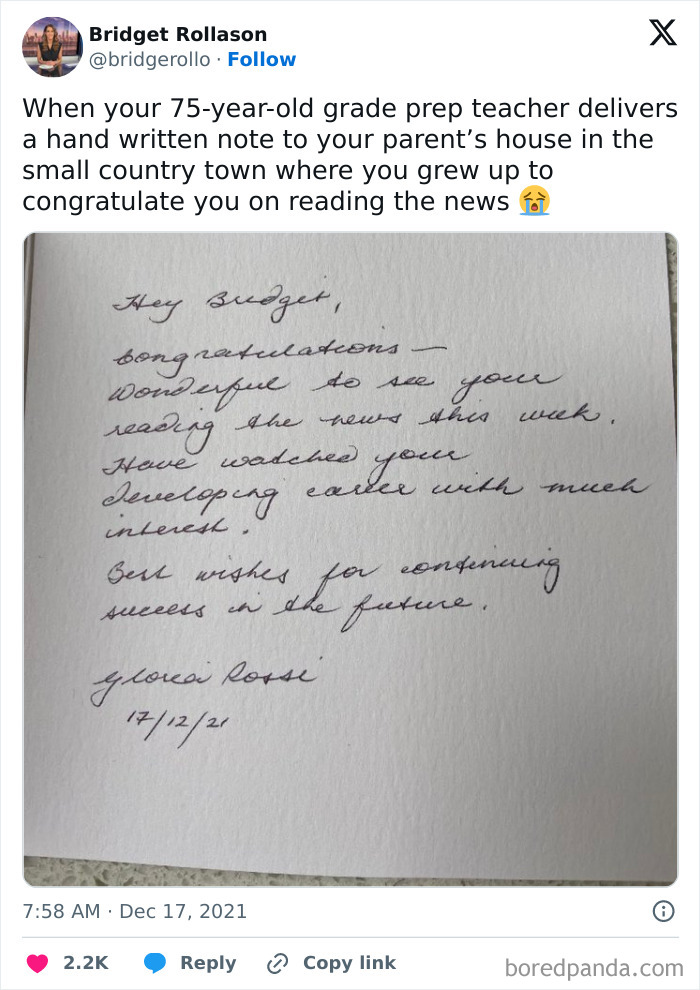 Bridget Rollason
@bridgerollo · Follow
When your 75-year-old grade prep teacher delivers
a hand written note to your parent’s house in the
small country town where you grew up to
congratulate you on reading the news 😭
Hey Bridget,
Congratulations —
Wonderful to see your
reading the news this week.
Have watched your
developing career with much
interest.
Best wishes for continuing
success in the future.
Gloria Rossi
17/12/21
7:58 AM · Dec 17, 2021
2.2K Reply Copy link
boredpanda.com